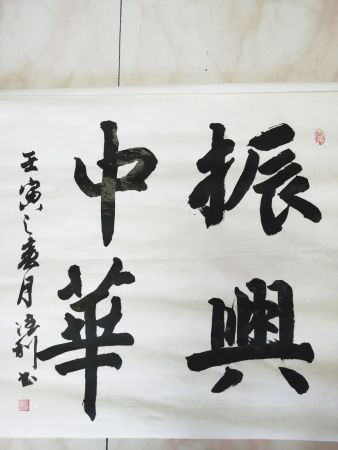 振興
中華
壬寅之春月 书